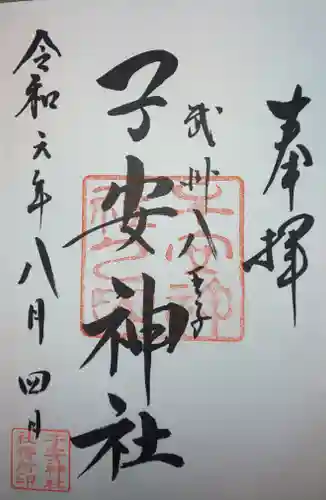 奉拝
武州八王子
子安神社
令和元年八月四日
子安神社
社務所印